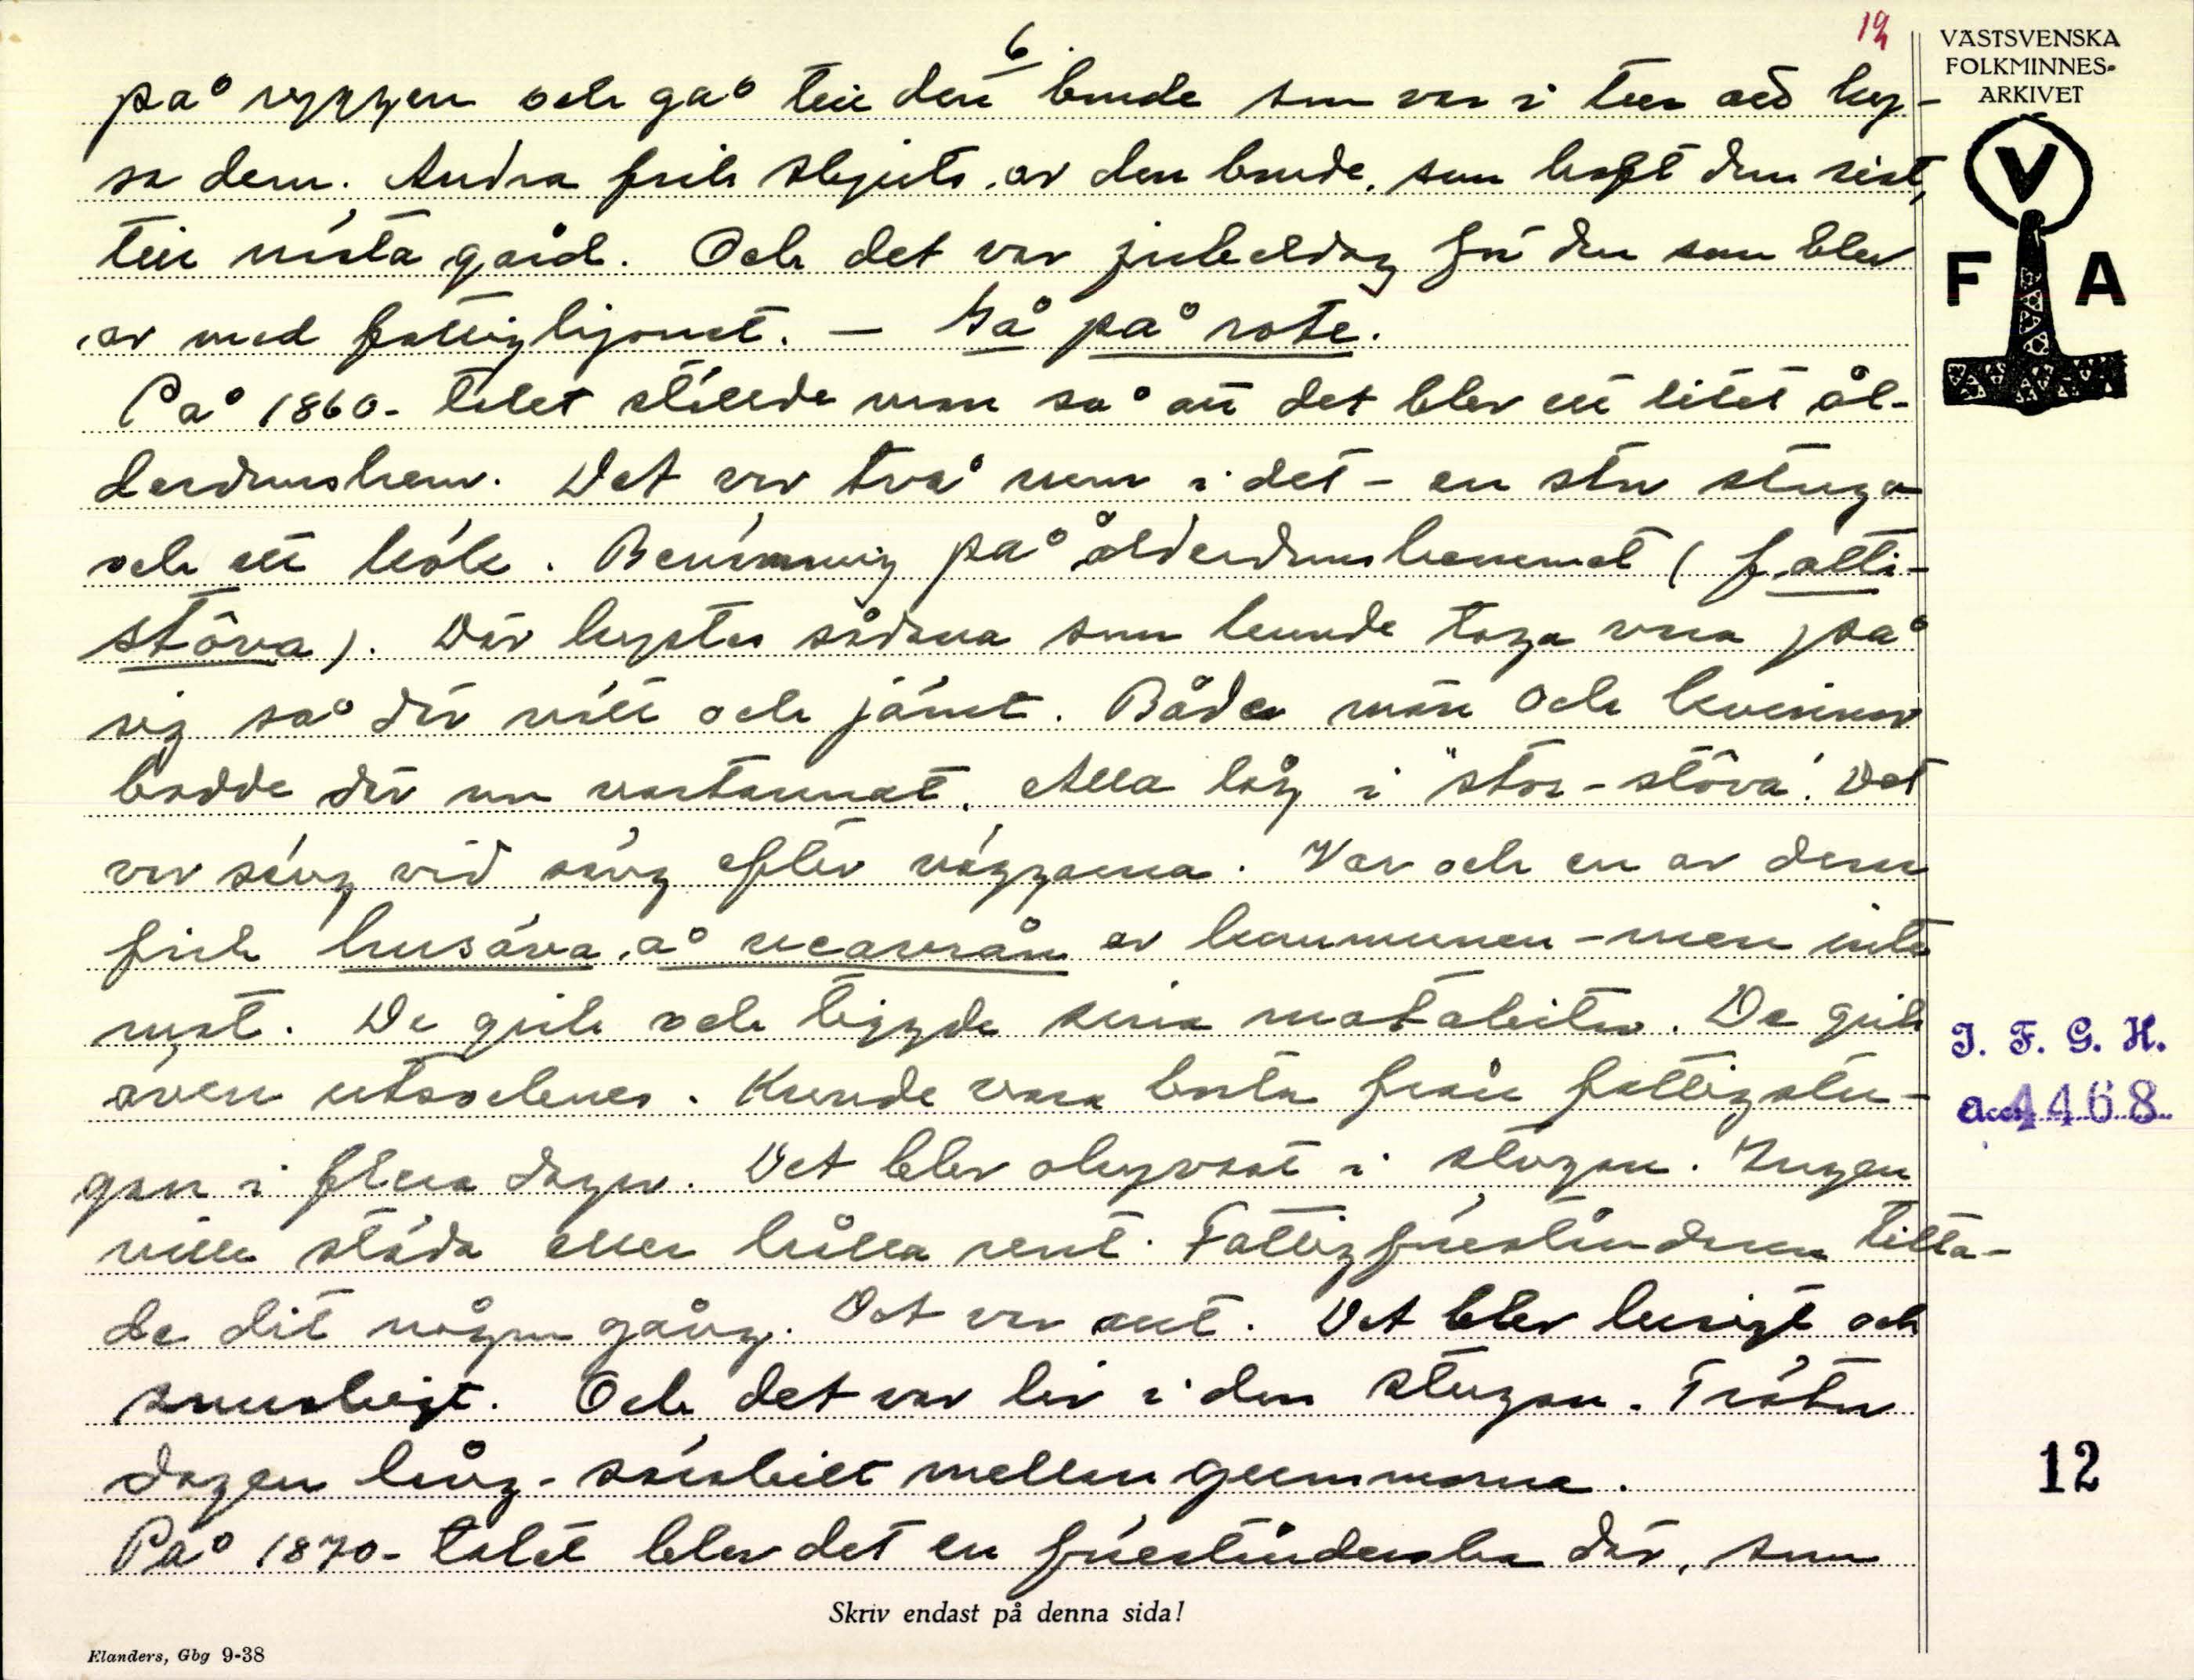 6.
12
VÄSTSVENSKA
FOLKMINNES-
ARKIVET
V
F A
på ryggen och gå till den bonde som var i tur att hy-
sa dem. Andra fick skjuts av den bonde, som haft dem sist,
till nästa gård. Och det var jubeldag för den som blev
av med fattighjonet. — Gå på rote.
På 1860-talet ställde man så att det blev ett litet ål-
derdomshem. Det var två rum i det - en stor stuga
och ett kök. Benämning på ålderdomshemmet (fatti-
stôva). Där hystes sådana som kunde taga vara på
sig så där nätt och jämt. Både män och kvinnor
bodde där om vartannat. Alla låg i "stor-stôva". Det
var säng vid säng efter väggarna. Var och en av dem
fick husäva å veavrån av kommunen - men inte
mat. De gick och tiggde sina matabitar. De gick
även utsocknes. Kunde vara borta från fattigstu-
gan i flera dagar. Det blev ohyrsat i stugan. Ingen
ville städa eller hålla rent. Fattigföreståndaren titta-
de dit någon gång. Det var allt. Det blev lusigt och
snuskigt. Och det var liv i den stugan. Träta
dagen lång - särskilt mellan gummorna.
På 1870-talet blev det en föreståndarska där, som
I. F. G. H.
acc. 4468
12
Skriv endast på denna sida!
Elanders, Gbg 9-38